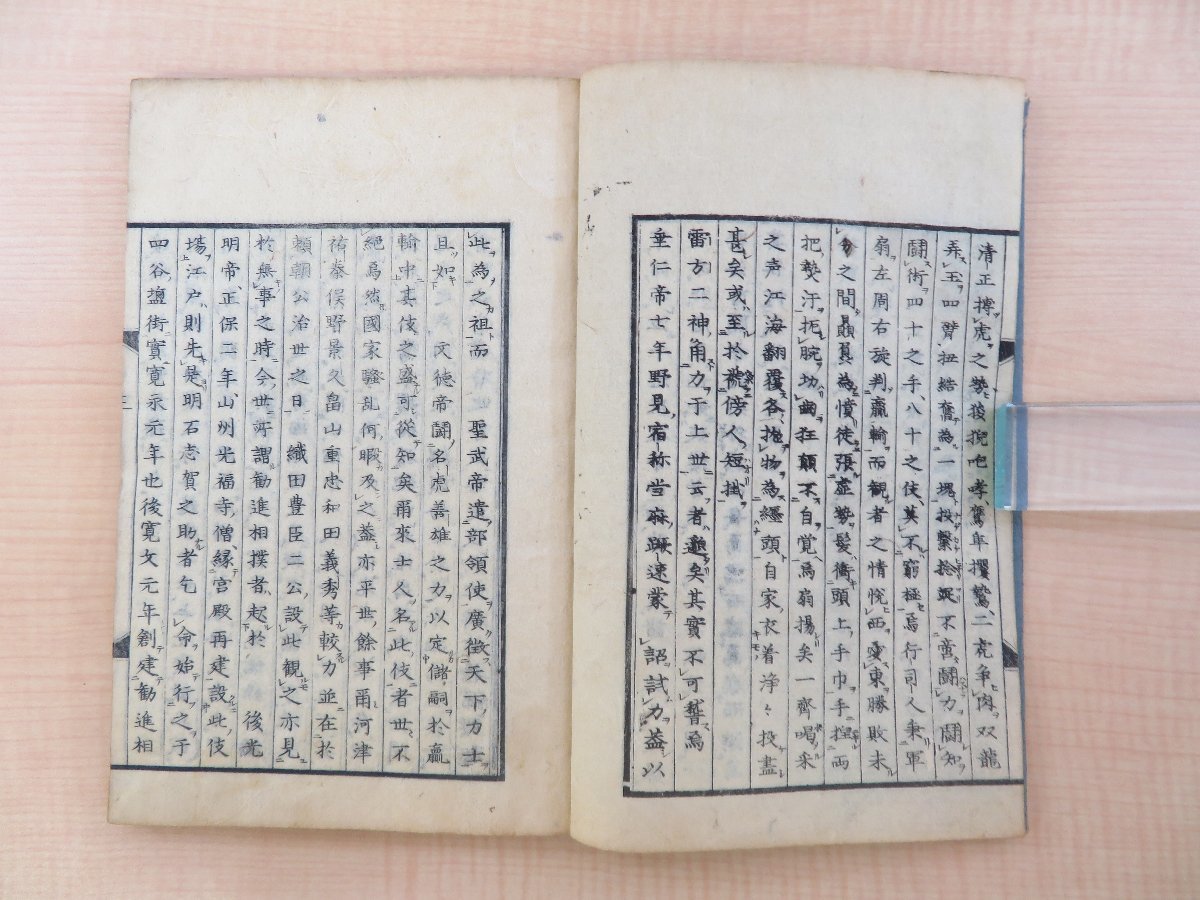 清正搏虎之勢狻猊咆哮鷙年攫鷙二虎争肉双龍
弄玉四臂扭結奮為一塊投繋捻泥不啻闘力闘知
闘術四十之手八十之伎莫不窮極焉行司人乗軍
扇左周右旋判贏輸而観者之情悦西愛東勝敗未
分之間顛真為憤徒張虚勢髪衝頭上手巾手捏両
把熱汗扼腕抝曲狂顛不自覚為扇揚矣一齊喝采
之声江海翻覆各抛物為纏頭自家衣着浄々投盡
甚矣或至於裭傍人短掛
雷方二神角力于上世云者邈矣其實不可誓焉
垂仁帝七年野見宿祢當麻蹶速蒙 詔試力盖以
此為之祖而 聖武帝遣部領使廣徴天下力士
且如 文徳帝闘名虎善雄之力以定儲嗣於贏
輸中其伎之盛可從知矣爾来士人名此伎者世不
絶焉然國家騒乱何暇及之盖亦平世餘事爾河津
祐泰俣野景久畠山重忠和田義秀等較力並在於
頼朝公治世之日 織田豊臣二公設此観之亦見
於無事之時今世所謂勧進相撲者起於 後光
明帝正保二年山州光福寺僧縁宮殿再建設此伎
場江戸則先是明石志賀之助者乞 命始行之于
四谷盬街實寛永元年也後寛文元年創建勧進相